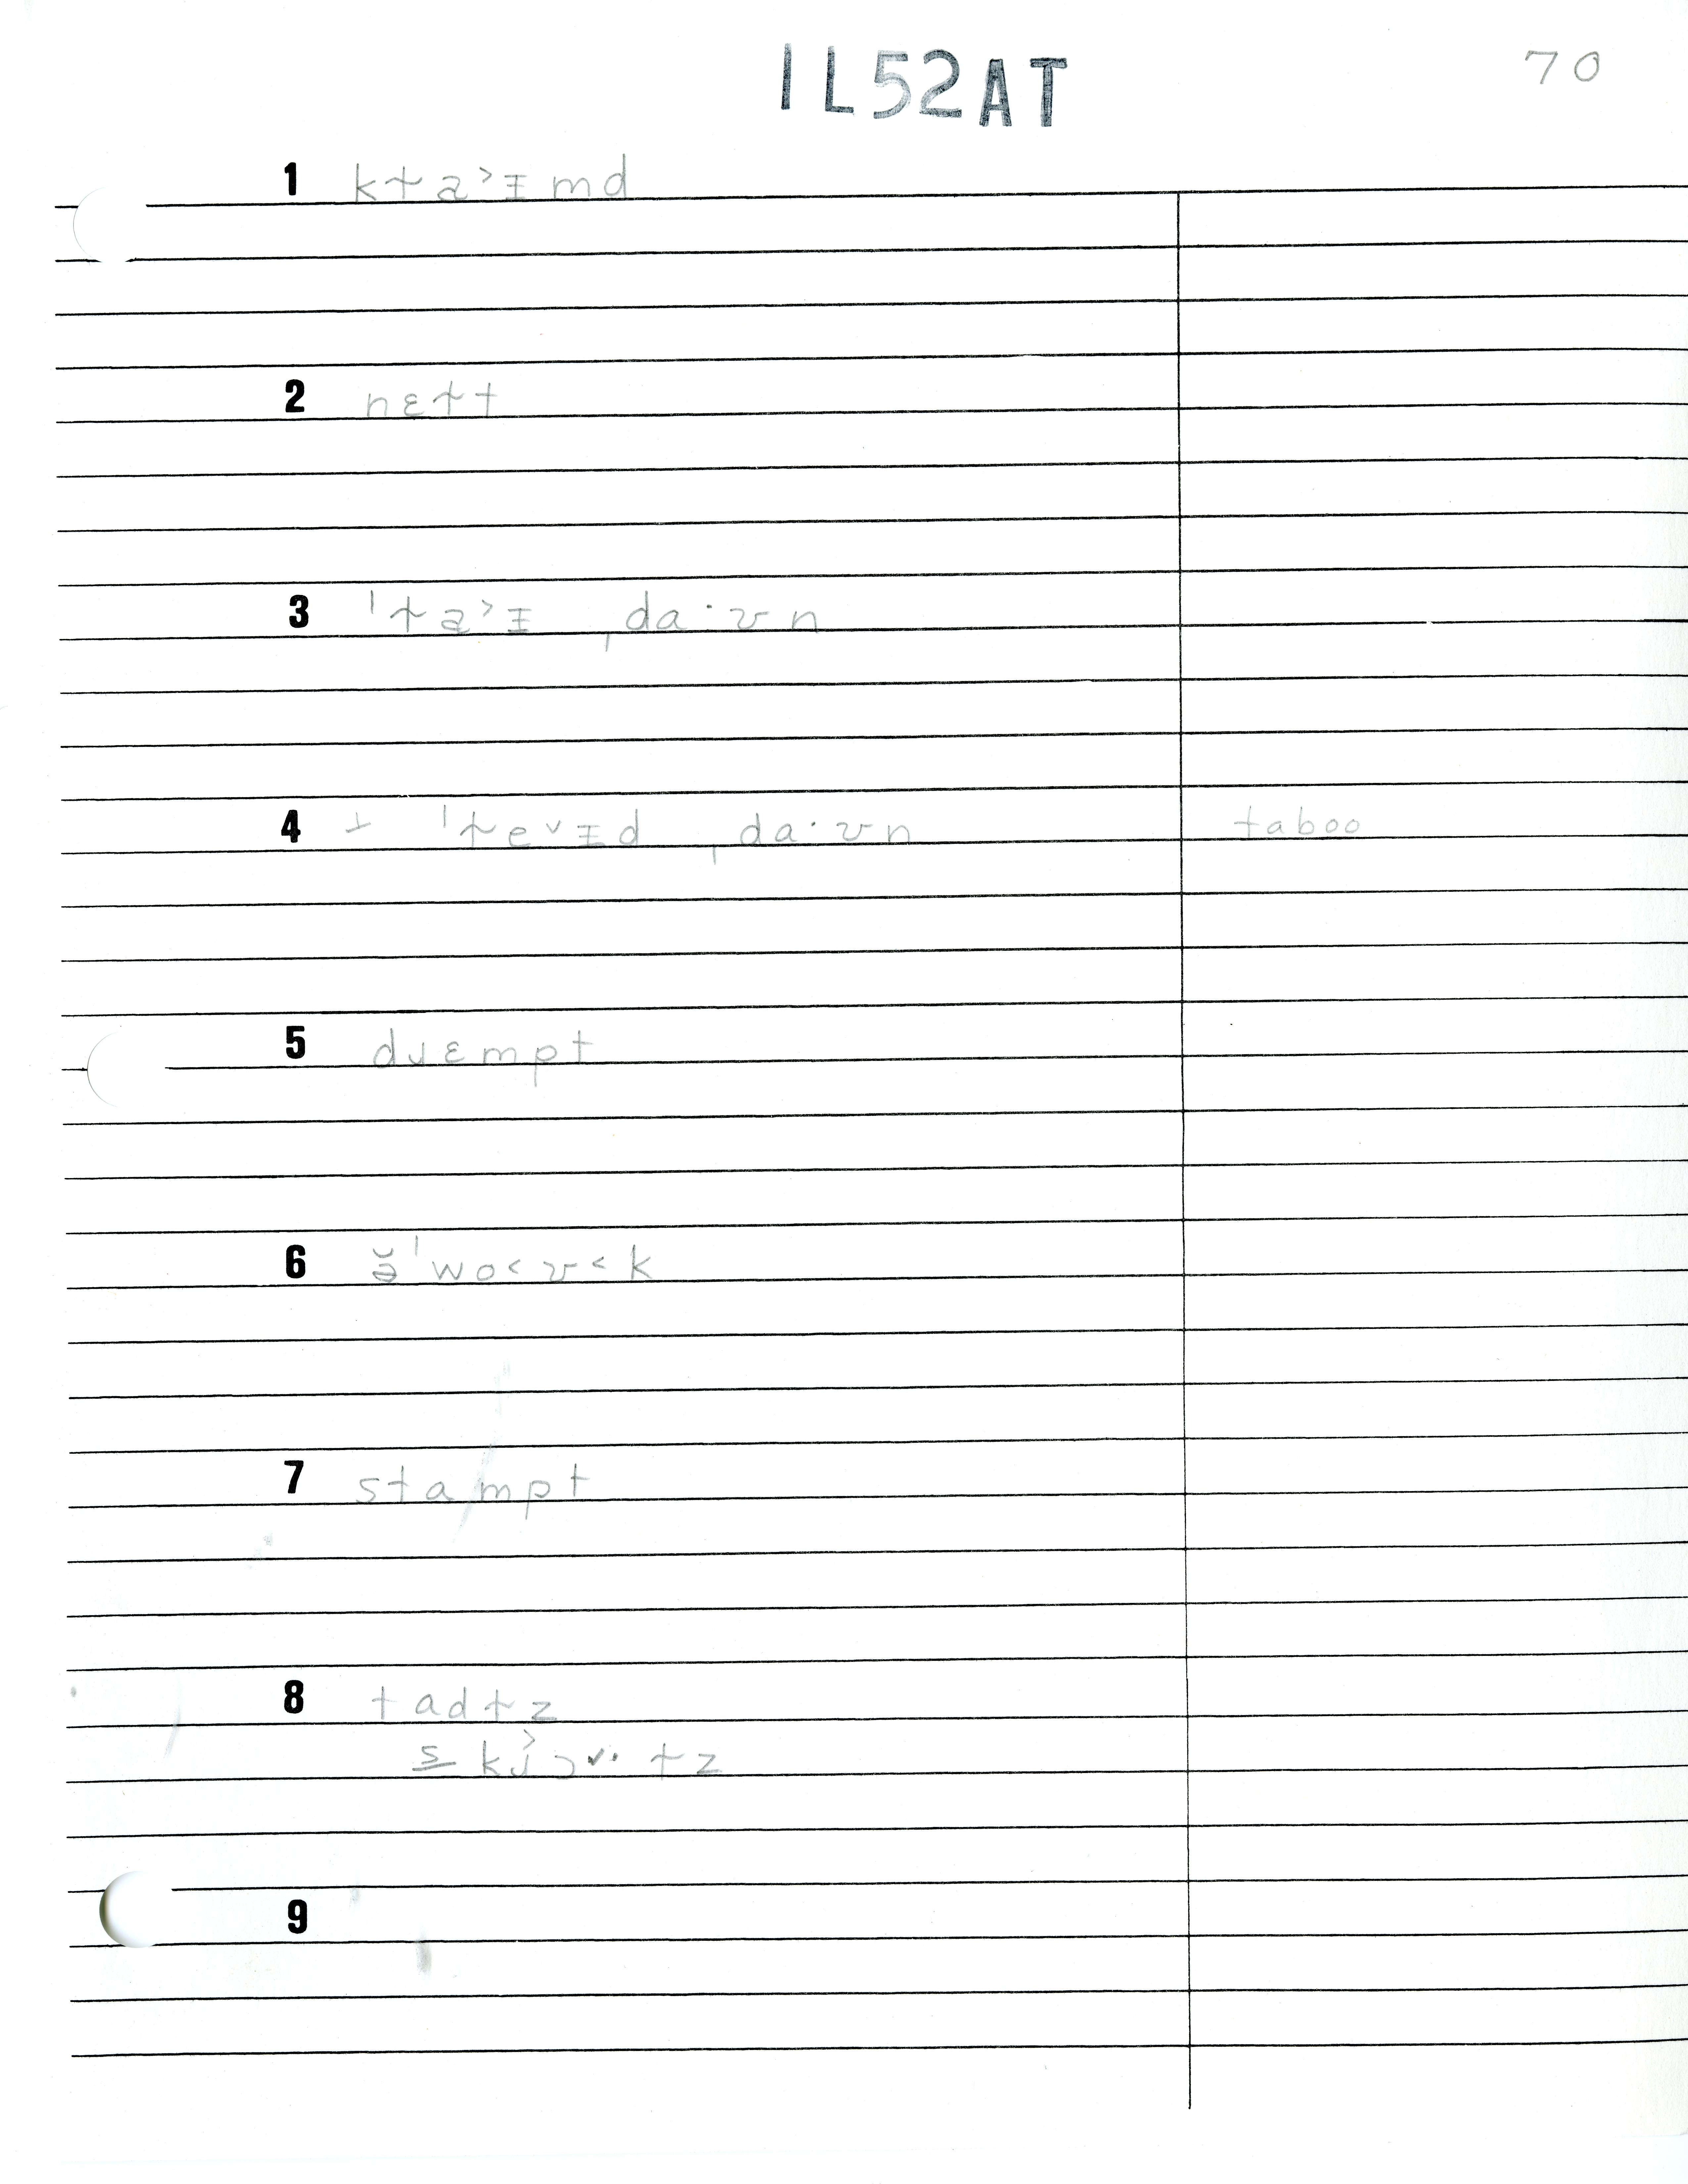 1L52AT
70
1 kɫa˃ɪmd
2 nɛɫt
3 ˈɫa˃ɪ ˌda·ʊn
4 ⊥ ˈɫe˅ɪd ˌda·ʊn taboo
5 dɹɛmpt
6 ə̆ˈwo˂ʊ˂k
7 stampt
8 tadɫz
s kɹ̓ɔ˅·ɫz
9